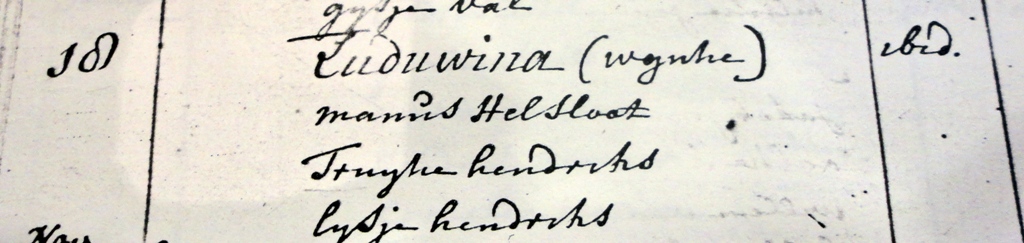 gysje Val
18 Luduwina (wynhe) ibid.
manus Helsloot
Truyhe hendriks
lysje hendriks
Nov